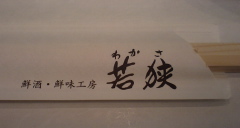 わかさ
鮮酒・鮮味工房 若狭